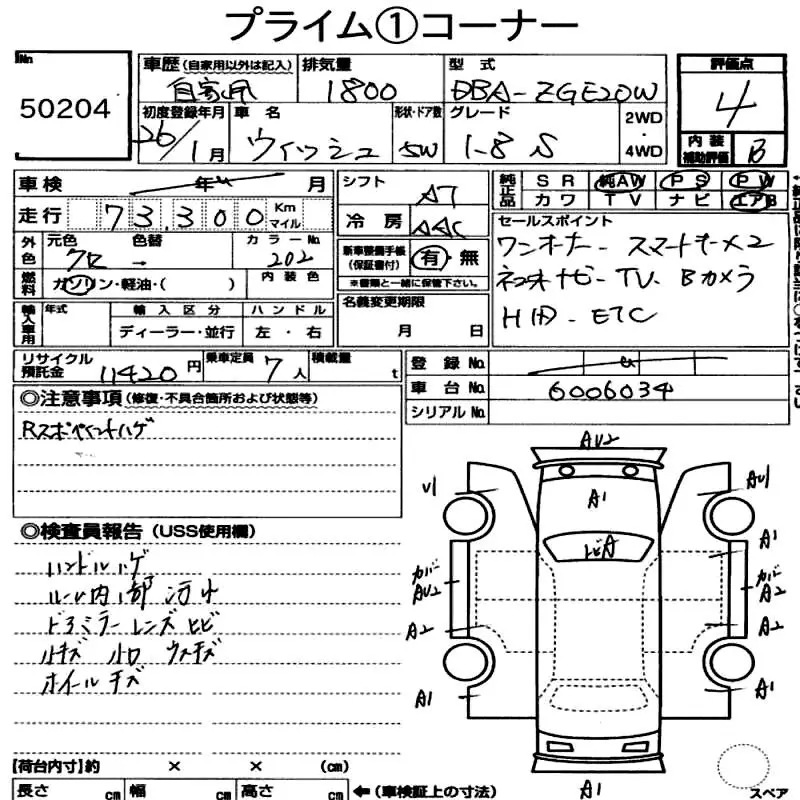 プライム①コーナー
No.
50204
車歴 (自家用以外は記入)
自家用
排気量
1800
型式
DBA-ZGE20W
評価点
4
初度登録年月
26/1月
車名
ウィッシュ
形状・ドア数
5W
グレード
1.8 S
2WD
・
4WD
内装
補助評価
B
車検 年 月
シフト
AT
純正品
SR 純AW PS PW
カワ TV ナビ エアB
走行 73,300 Km
マイル
冷房
AAC
セールスポイント
ワンオーナー スマートキー×2
外色
元色 色替
クロ →
カラーNo.
202
新車整備手帳
(保証書付)
有・無
※書類と一緒に保管下さい。
社外ナビ TV Bカメラ
燃料
ガソリン・軽油・( )
内装色
HID ETC
輸入車用
年式
輸入区分
ディーラー・並行
ハンドル
左・右
名義変更期限
月 日
リサイクル
預託金
11420円
乗車定員
7人
積載量
t
登録No.
車台No.
6006034
シリアルNo.
◎注意事項 (修復・不具合箇所および状態等)
Rスポペイントハゲ
◎検査員報告 (USS使用欄)
ハンドルハゲ
ルーム内部汚れ
ドアミラーレンズヒビ
小キズ 小凹 ウスキズ
ホイールキズ
AU2
U1
A1
AU1
トビA
A1
カバー
AU2
カバー
A2
A2
A2
A1
A1
A1
スペア
【荷台内寸】約 × × (cm)
長さ cm 幅 cm 高さ cm ←(車検証上の寸法)